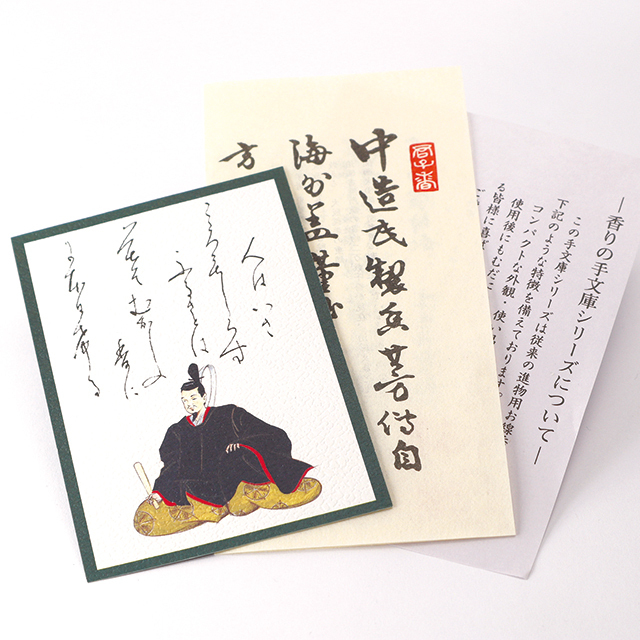 人はいさ
こゝろもしらす
ふるさとは
花そむかしの
香に
にほひける
君子香
中造氏製香芳傳自
海外盖
方
― 香りの手文庫シリーズについて ―
この手文庫シリーズは従来の進物用お線
下記のような特徴を備えております。
コンパクトな外観、使い
使用後にもむだに
る皆様に喜ば